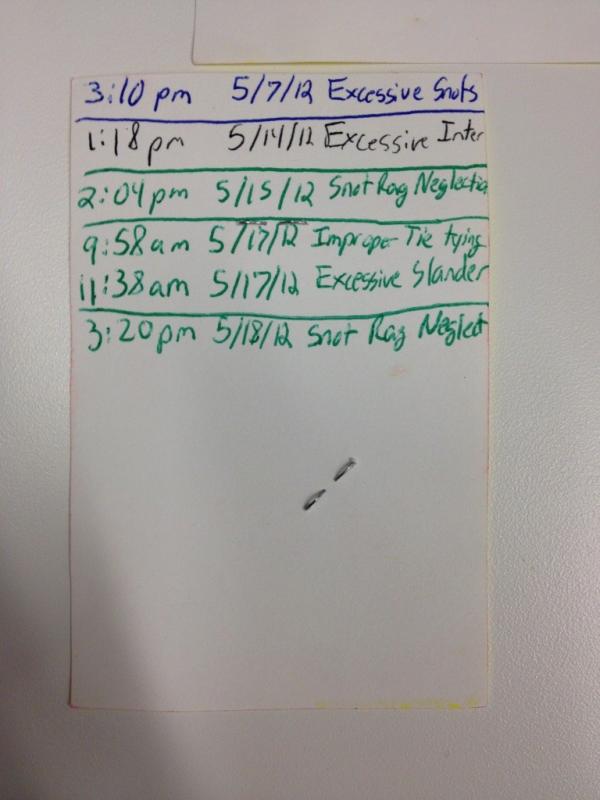 3:10 pm 5/7/12 Excessive Snots
1:18 pm 5/14/12 Excessive Inter
2:04 pm 5/15/12 Snot Rag Neglection
9:58 am 5/17/12 Improper Tie tying
11:38 am 5/17/12 Excessive Slander
3:20 pm 5/18/12 Snot Rag Neglect